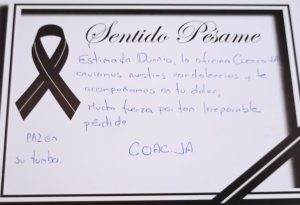 Sentido Pésame
Estimada Dunia, la oficina Cuenca
enviamos nuestras condolencias y te
acompañamos en tu dolor,
Mucha fuerza por tan Irreparable
pérdida
PAZ en
su tumba.
COAC. JA